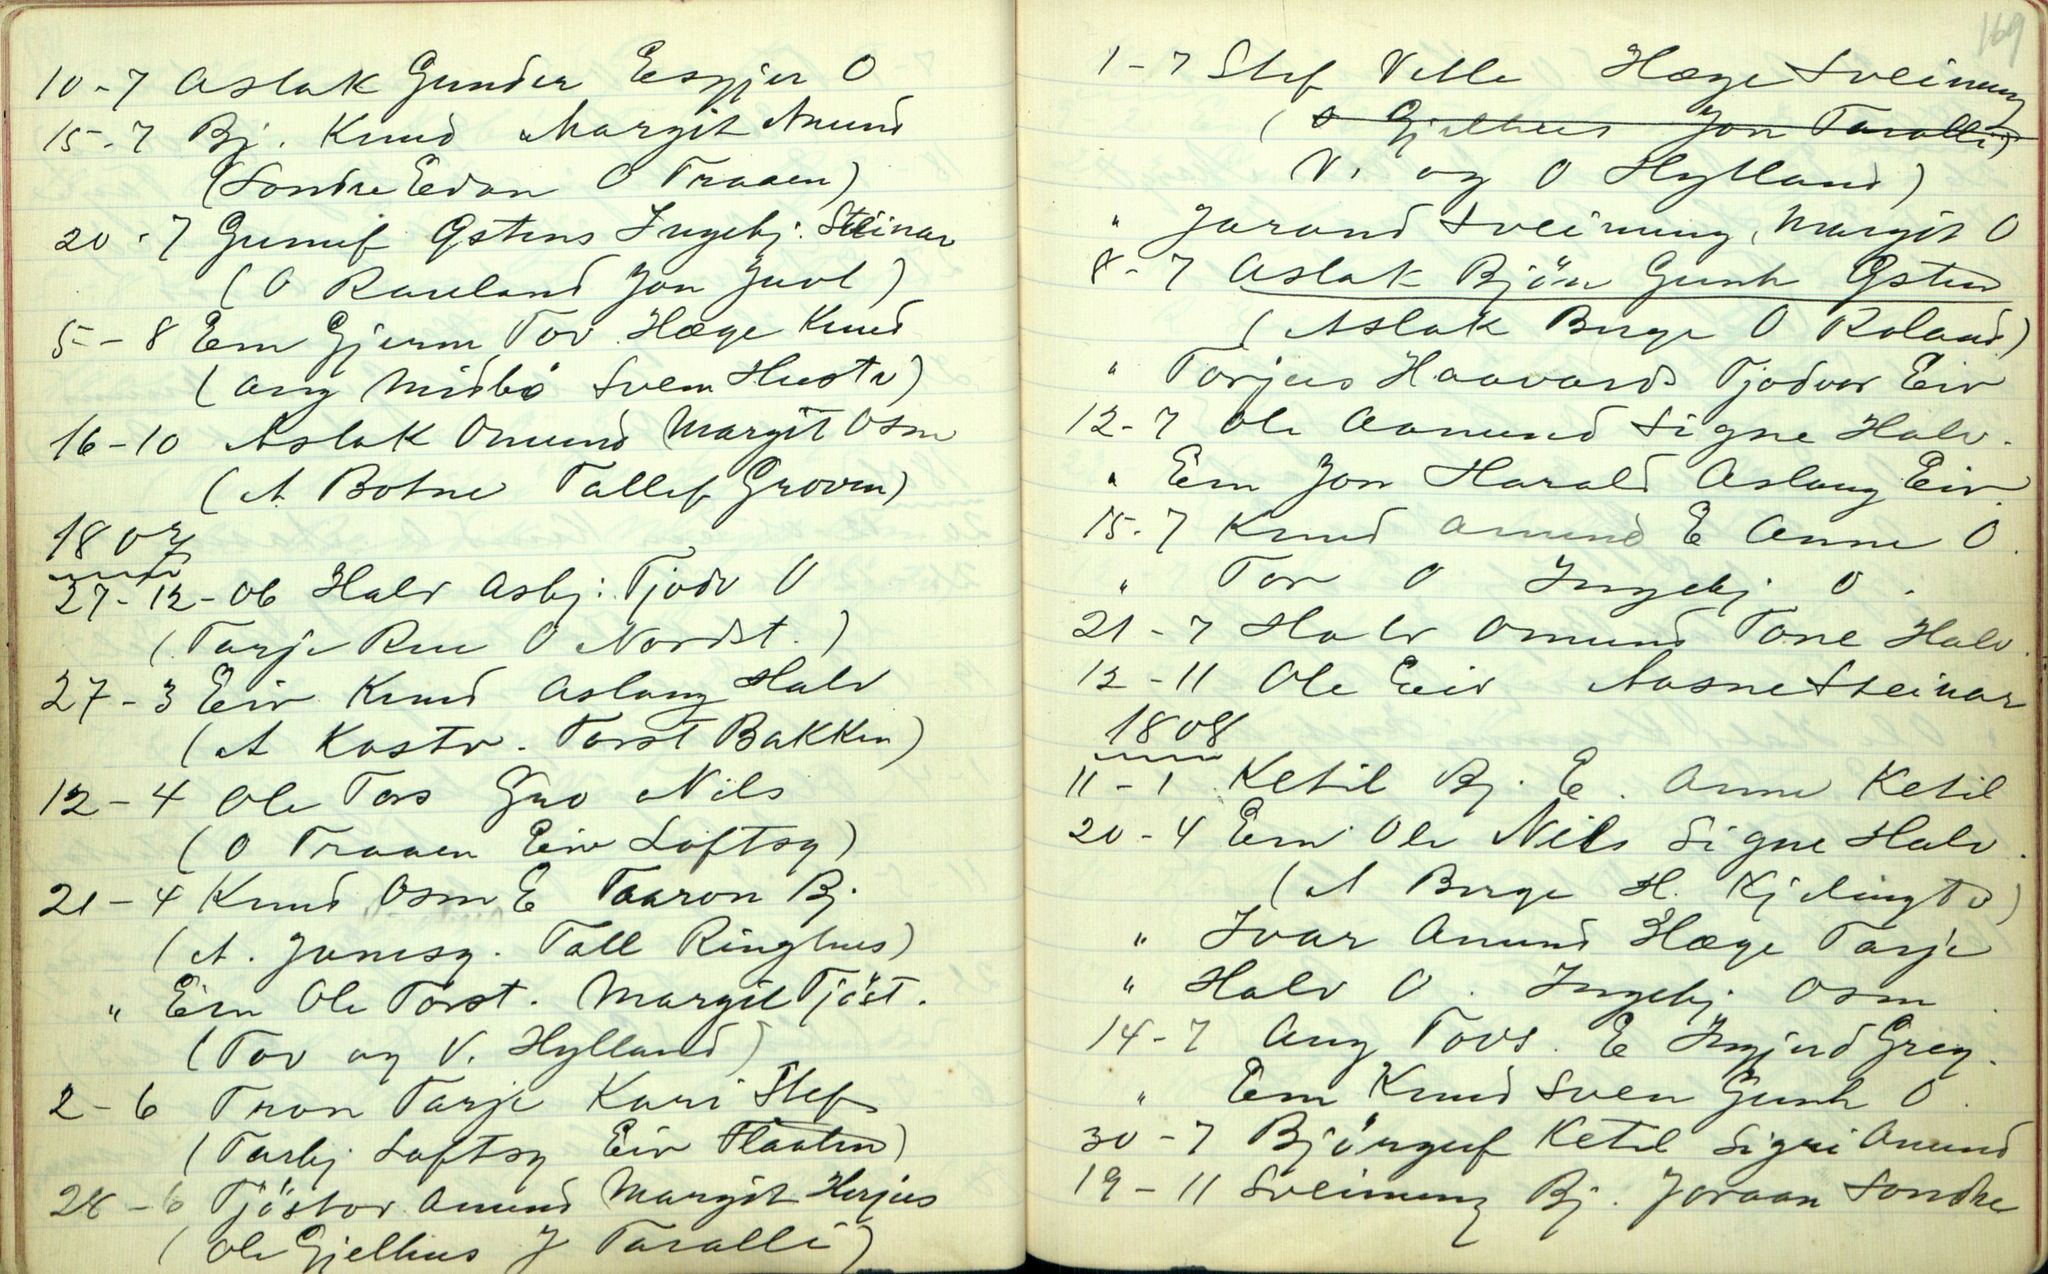 10-7 Aslak Gunder Esgjer O
15-7 Bj. Knud Margit Anund
(Sondre Edan O Traaen)
20-7 Gunuf Østens Ingebj. Steinar
(O Rauland Jon Juvl)
5-8 Em Gjerm Tov Hæge Knud
(Ang Midbö Sven Hustv)
16-10 Aslak Omund Margit Osm
(A Botne Tallef Groven)
1807
27-12-06 Halv Asbj: Tjodv O
(Tarje Rue O Nordst.)
27-3 Eiv Knud Aslaug Halv
(A Kostv. Torst Bakken)
12-4 Ole Tors Gro Nils
(O Traaen Eiv Loftsg)
21-4 Knud Osm E Taaron Bj
(A. Jamsg. Tall Ringhus)
" Em Ole Torst. Margit Tjöst.
(Tov og V. Hylland)
2-6 Tron Tarje Kari Stef
(Torbj Loftsg Eiv Flaaten)
28-6 Tjöstov Amund Margit Herjus
(Ole Gjelhus J Taralli)
169
1-7 Stef Vetle Hæge Sveinung
(O Gjelhus Jon Taralli)
V. og O Hylland)
" Jorand Sveinung, Margit O
8-7 Aslak Bjön Gunh Østen
(Aslak Berge O Roland)
" Torjus Haavards Tjodvor Eiv
12-7 Ole Aamund Signe Halv.
" Em Jon Harald Aslaug Eiv.
15-7 Knud Amund E Anne O.
" Tor O Ingebj O.
21-7 Halv Omund Tone Halv.
12-11 Ole Eiv Aasne Steinar
1808
11-1 Ketil Bj. E. Anne Ketil
20-4 Em Ole Nils Signe Halv.
(A Berge H. Kj
" Ivar Anund Hæge Tarje
" Halv O. Ingebj Osm.
14-7 Ang Tovs. E Ingjerd Greg.
" Em Knud Sven Gunh O.
30-7 Björguf Ketil Sigri Anund
19-11 Sveinung Bj. Joraan Sondre